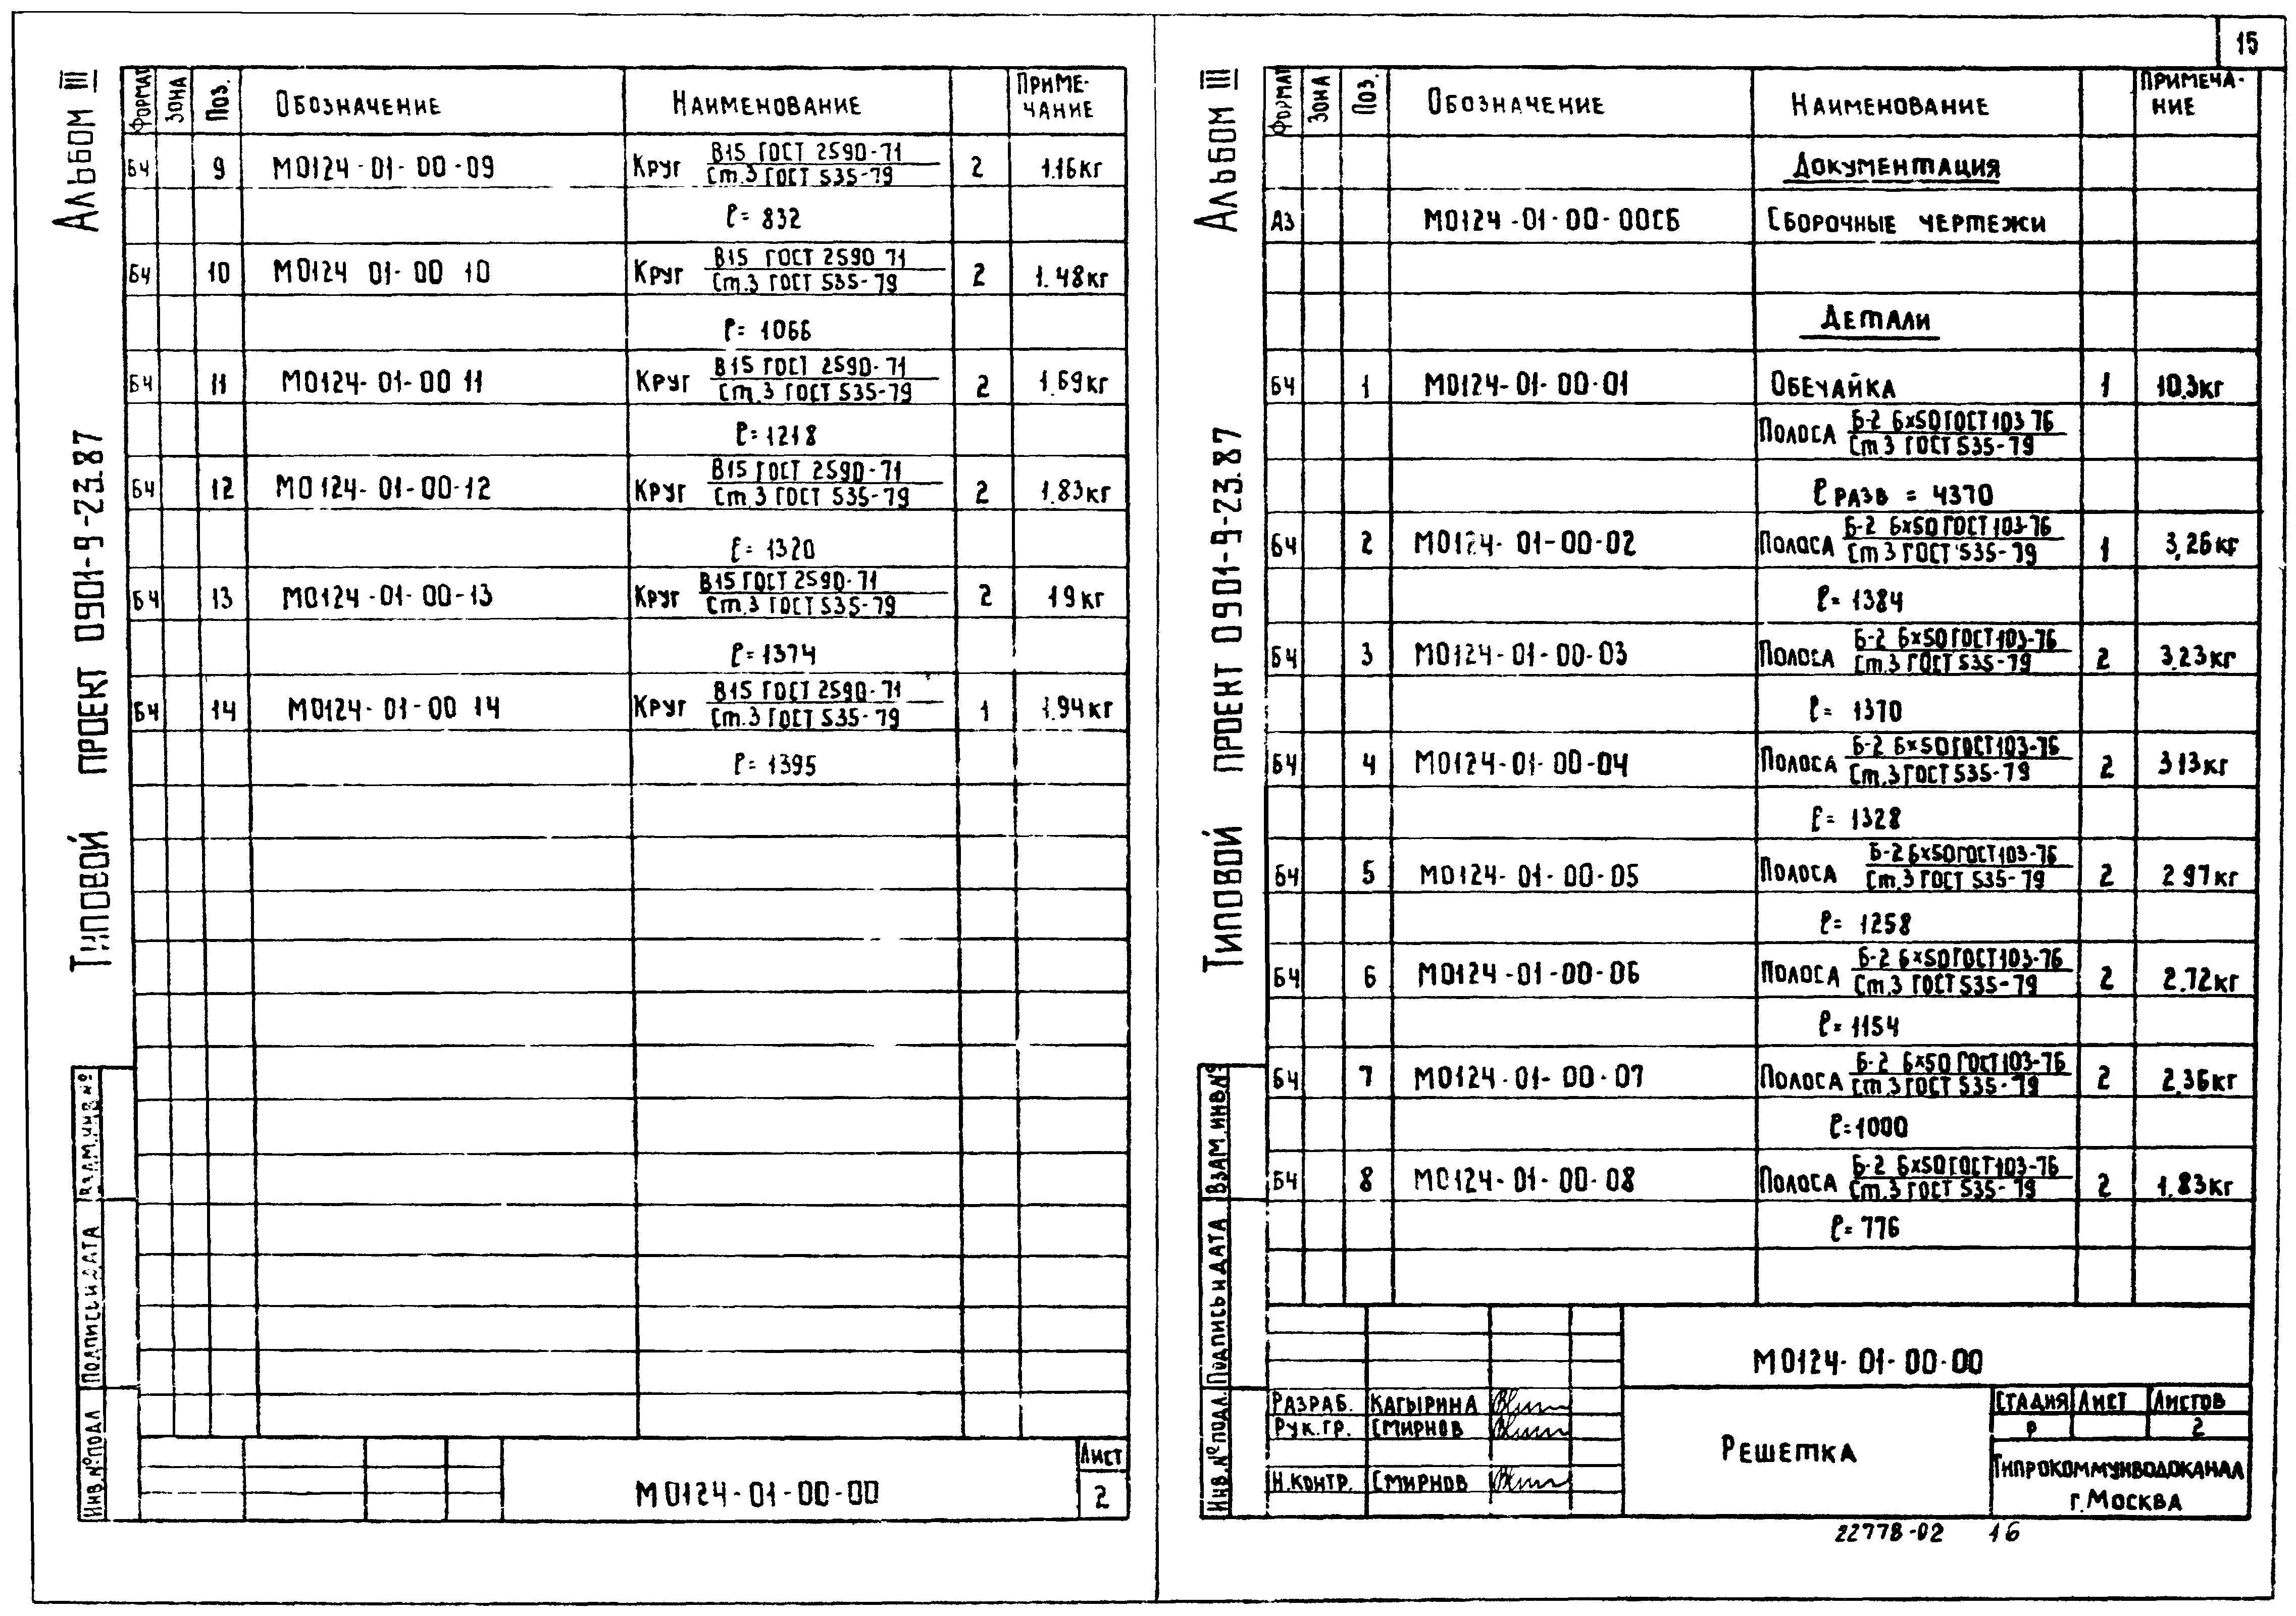 15
Альбом III
Типовой проект 0901-9-23.87
Формат Зона Поз. Обозначение Наименование Примечание
БЧ 9 М0124-01-00-09 Круг В15 ГОСТ 2590-71 / Ст.3 ГОСТ 535-79 2 1.16кг
ℓ= 832
БЧ 10 М0124 01-00 10 Круг В15 ГОСТ 2590 71 / Ст.3 ГОСТ 535-79 2 1.48кг
ℓ= 1066
БЧ 11 М0124-01-00 11 Круг В15 ГОСТ 2590-71 / Ст.3 ГОСТ 535-79 2 1.69кг
ℓ=1218
БЧ 12 М0124-01-00-12 Круг В15 ГОСТ 2590-71 / Ст.3 ГОСТ 535-79 2 1.83кг
ℓ= 1320
БЧ 13 М0124-01-00-13 Круг В15 ГОСТ 2590-71 / Ст.3 ГОСТ 535-79 2 19кг
ℓ=1374
БЧ 14 М0124-01-00 14 Круг В15 ГОСТ 2590-71 / Ст.3 ГОСТ 535-79 1 1.94кг
ℓ= 1395
Взам.инв.№
Подпись и дата
Инв.№ подл
М0124-01-00-00
Лист
2
Альбом III
Типовой проект 0901-9-23.87
Формат Зона Поз. Обозначение Наименование Примечание
Документация
А3 М0124-01-00-00СБ Сборочные чертежи
Детали
БЧ 1 М0124-01-00-01 Обечайка 1 10.3кг
Полоса Б-2 6×50 ГОСТ 103 76 / Ст 3 ГОСТ 535-79
ℓ разв = 4370
БЧ 2 М0124-01-00-02 Полоса Б-2 6×50 ГОСТ 103-76 / Ст 3 ГОСТ 535-79 1 3,26кг
ℓ= 1384
БЧ 3 М0124-01-00-03 Полоса Б-2 6×50 ГОСТ 103-76 / Ст.3 ГОСТ 535-79 2 3.23кг
ℓ= 1370
БЧ 4 М0124-01-00-04 Полоса Б-2 6×50 ГОСТ 103-76 / Ст.3 ГОСТ 535-79 2 3 13кг
ℓ= 1328
БЧ 5 М0124-01-00-05 Полоса Б-2 6×50 ГОСТ 103-76 / Ст.3 ГОСТ 535-79 2 2 97кг
ℓ= 1258
БЧ 6 М0124-01-00-06 Полоса Б-2 6×50 ГОСТ 103-76 / Ст.3 ГОСТ 535-79 2 2.72кг
ℓ= 1154
БЧ 7 М0124-01-00-07 Полоса Б-2 6×50 ГОСТ 103-76 / Ст.3 ГОСТ 535-79 2 2.36кг
ℓ=1000
БЧ 8 М0124-01-00-08 Полоса Б-2 6×50 ГОСТ 103-76 / Ст.3 ГОСТ 535-79 2 1.83кг
ℓ= 776
Взам.инв.№
Подпись и дата
Инв.№ подл.
М0124-01-00-00
Разраб. Кагырина
Рук.гр. Смирнов
Н.контр. Смирнов
Решетка
Стадия Лист Листов
Р 2
Гипрокоммунводоканал
г.Москва
22778-02 16